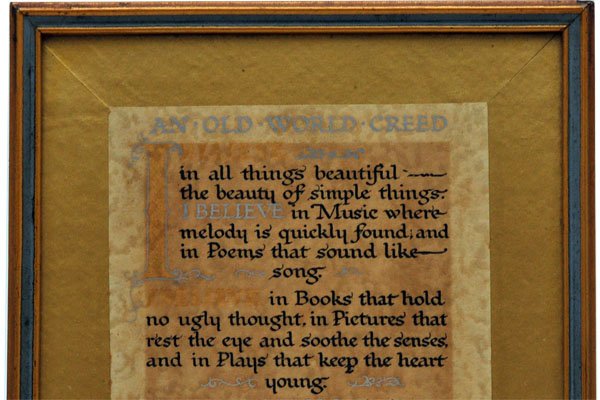 AN · OLD · WORLD · CREED
I
in all things beautiful
the beauty of simple things.
I BELIEVE in Music where
melody is quickly found; and
in Poems that sound like
song.
in Books that hold
no ugly thought, in Pictures that
rest the eye and soothe the senses,
and in Plays that keep the heart
young.